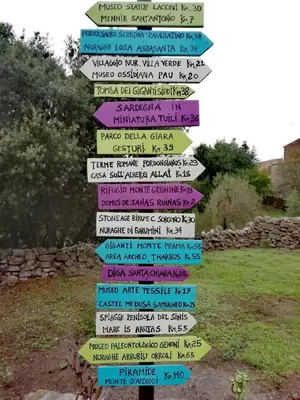 MUSEO STATUE LACONI Km.30
MENHIR SANT'ANTONIO Km.7
POZZO SACRO S.CRISTINA PAULILATINO Km.38
NURAGHE LOSA ABBASANTA Km.34
VILLAGGIO NUR. VILLA VERDE Km.21
MUSEO OSSIDIANA PAU Km.20
TOMBA DEI GIGANTI SIDDI Km.38
SARDEGNA IN
MINIATURA TUILI Km.36
PARCO DELLA GIARA
GESTURI Km.39
TERME ROMANE FORDONGIANUS Km.23
CASA SULL'ALBERO ALLAI Km.15
RIFUGIO MONTE GRIGHINE Km.13
DOMUS DE JANAS RUINAS Km.2
STONEAGE BIRU'E C. SORGONO Km.30
NURAGHE DI BARUMINI Km.34
GIGANTI MONTE PRAMA Km.55
AREA ARCHEO THARROS Km.55
DIGA SANTA CHIARA Km.28
MUSEO ARTE TESSILE Km.17
CASTEL MEDUSA SAMUGHEO Km.21
SPIAGGE PENISOLA DEL SINIS
MARE IS ARUTAS Km.55
MUSEO PALEONTOLOGICO GENONI Km.25
NURAGHE ARRUBIU ORROLI Km.65
PIRAMIDE
MONTE D'ACCODDI Km.140